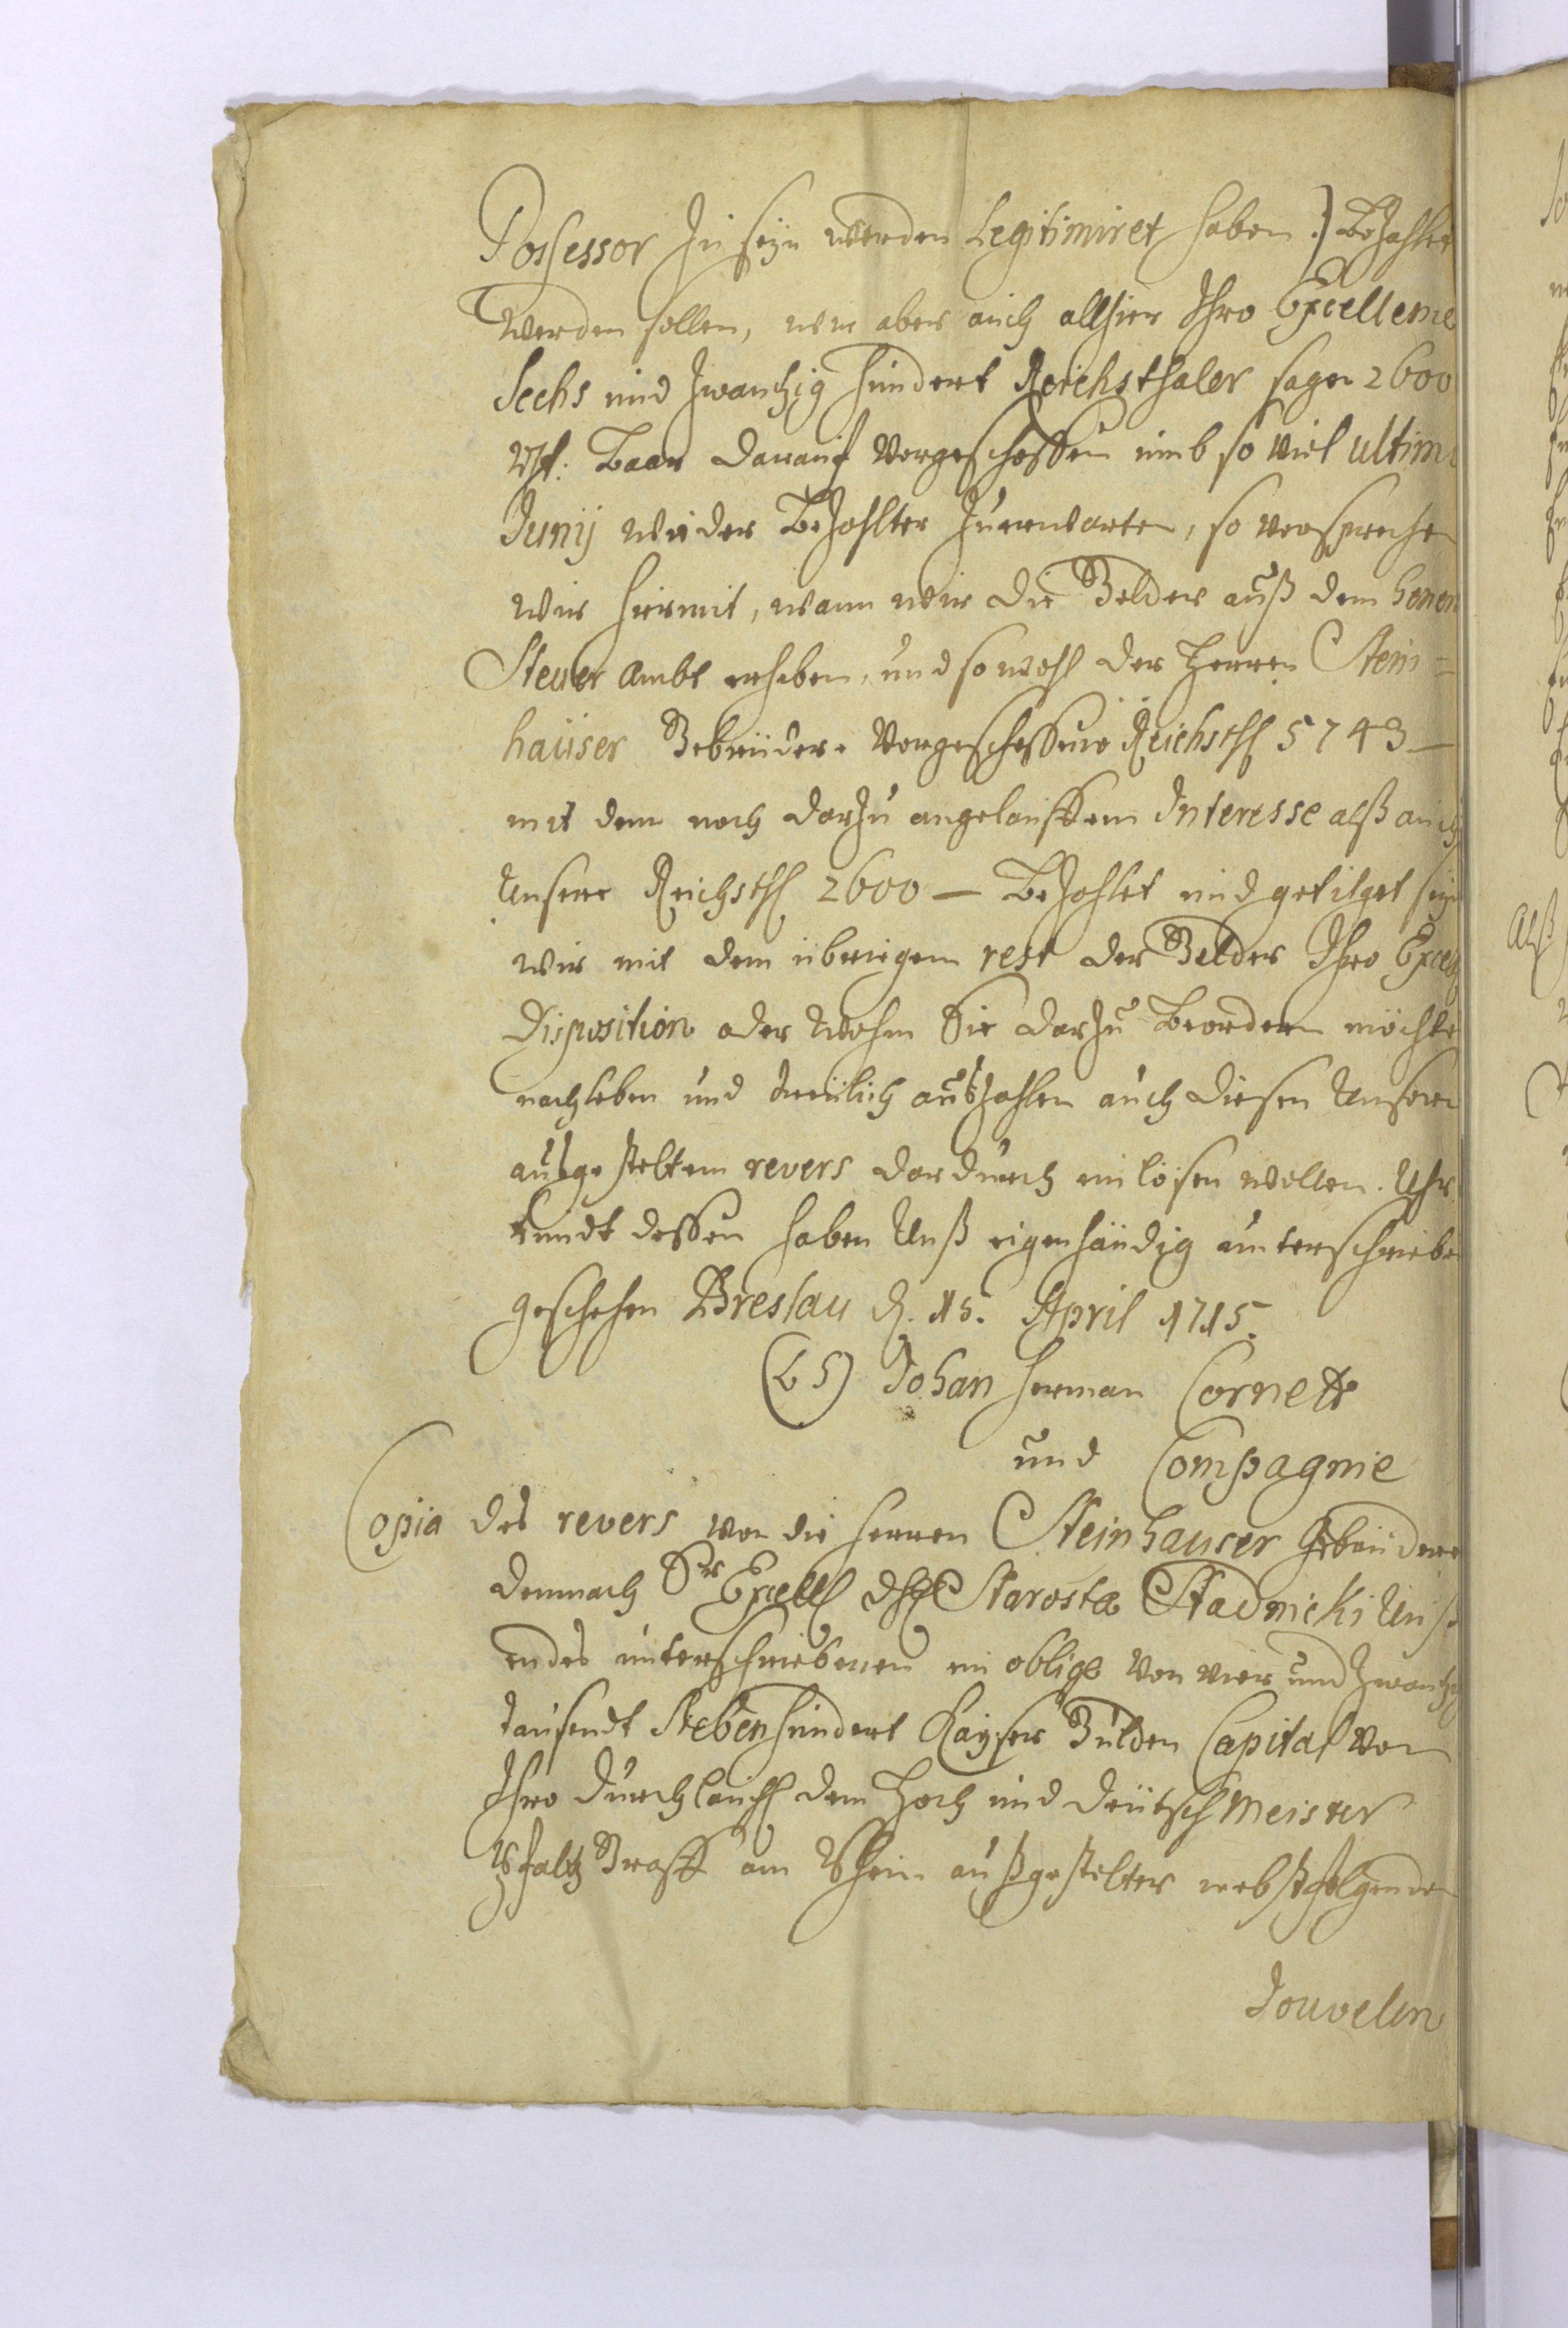 Possessor zu seyn werden Legitimiret haben.) Bezahlet
werden sollen, wir aber auch allhier Ihro Excellence
Sechs und zwanzig hundert Reichsthaler sage 2600
Rth. baar darauf vorgeschossen umb so viel ultimo
Junij wieder bezahlter zuerwarten, so versprechen
wir hiermit, wann wir die Gelder auß dem
Steuer Ambt erheben, und sowohl der Herren Stein=
haüser Gebrüdere vorgeschossene Reichsth 5743 —
mit dem noch darzu angelauffenen Interesse alß auch
Unsere Reichsth 2600 — Bezahlet und getilget seyn
wir mit dem übrigem rest der Gelder Ihro Excell
Disposition oder Wehm Sie darzu Beordern möchte
nachleben und treülich außzahlen auch diesen Unsern
außgesteltem revers dardurch einlösen wollen. Uhr
kundt dessen haben Unß eigenhändig unterschrieben
geschehen Breslau d. 15. April 1715.
(L S) Johan Herman Cornette
und Compagnie
Copia des revers von die Herren Steinhauser Gebrüdere
Demnach Sr Excell Starosta Stadnicki Unß
endes unterschriebenen ein oblige von vier und zwanzig
tausendt Siebenhundert Kayser Gulden Capital von
Ihro Durchlaucht dem Hoch und Deütsch Meister
Pfaltz Graff am Rhein außgestelter nebst folgenden
Jouvelen